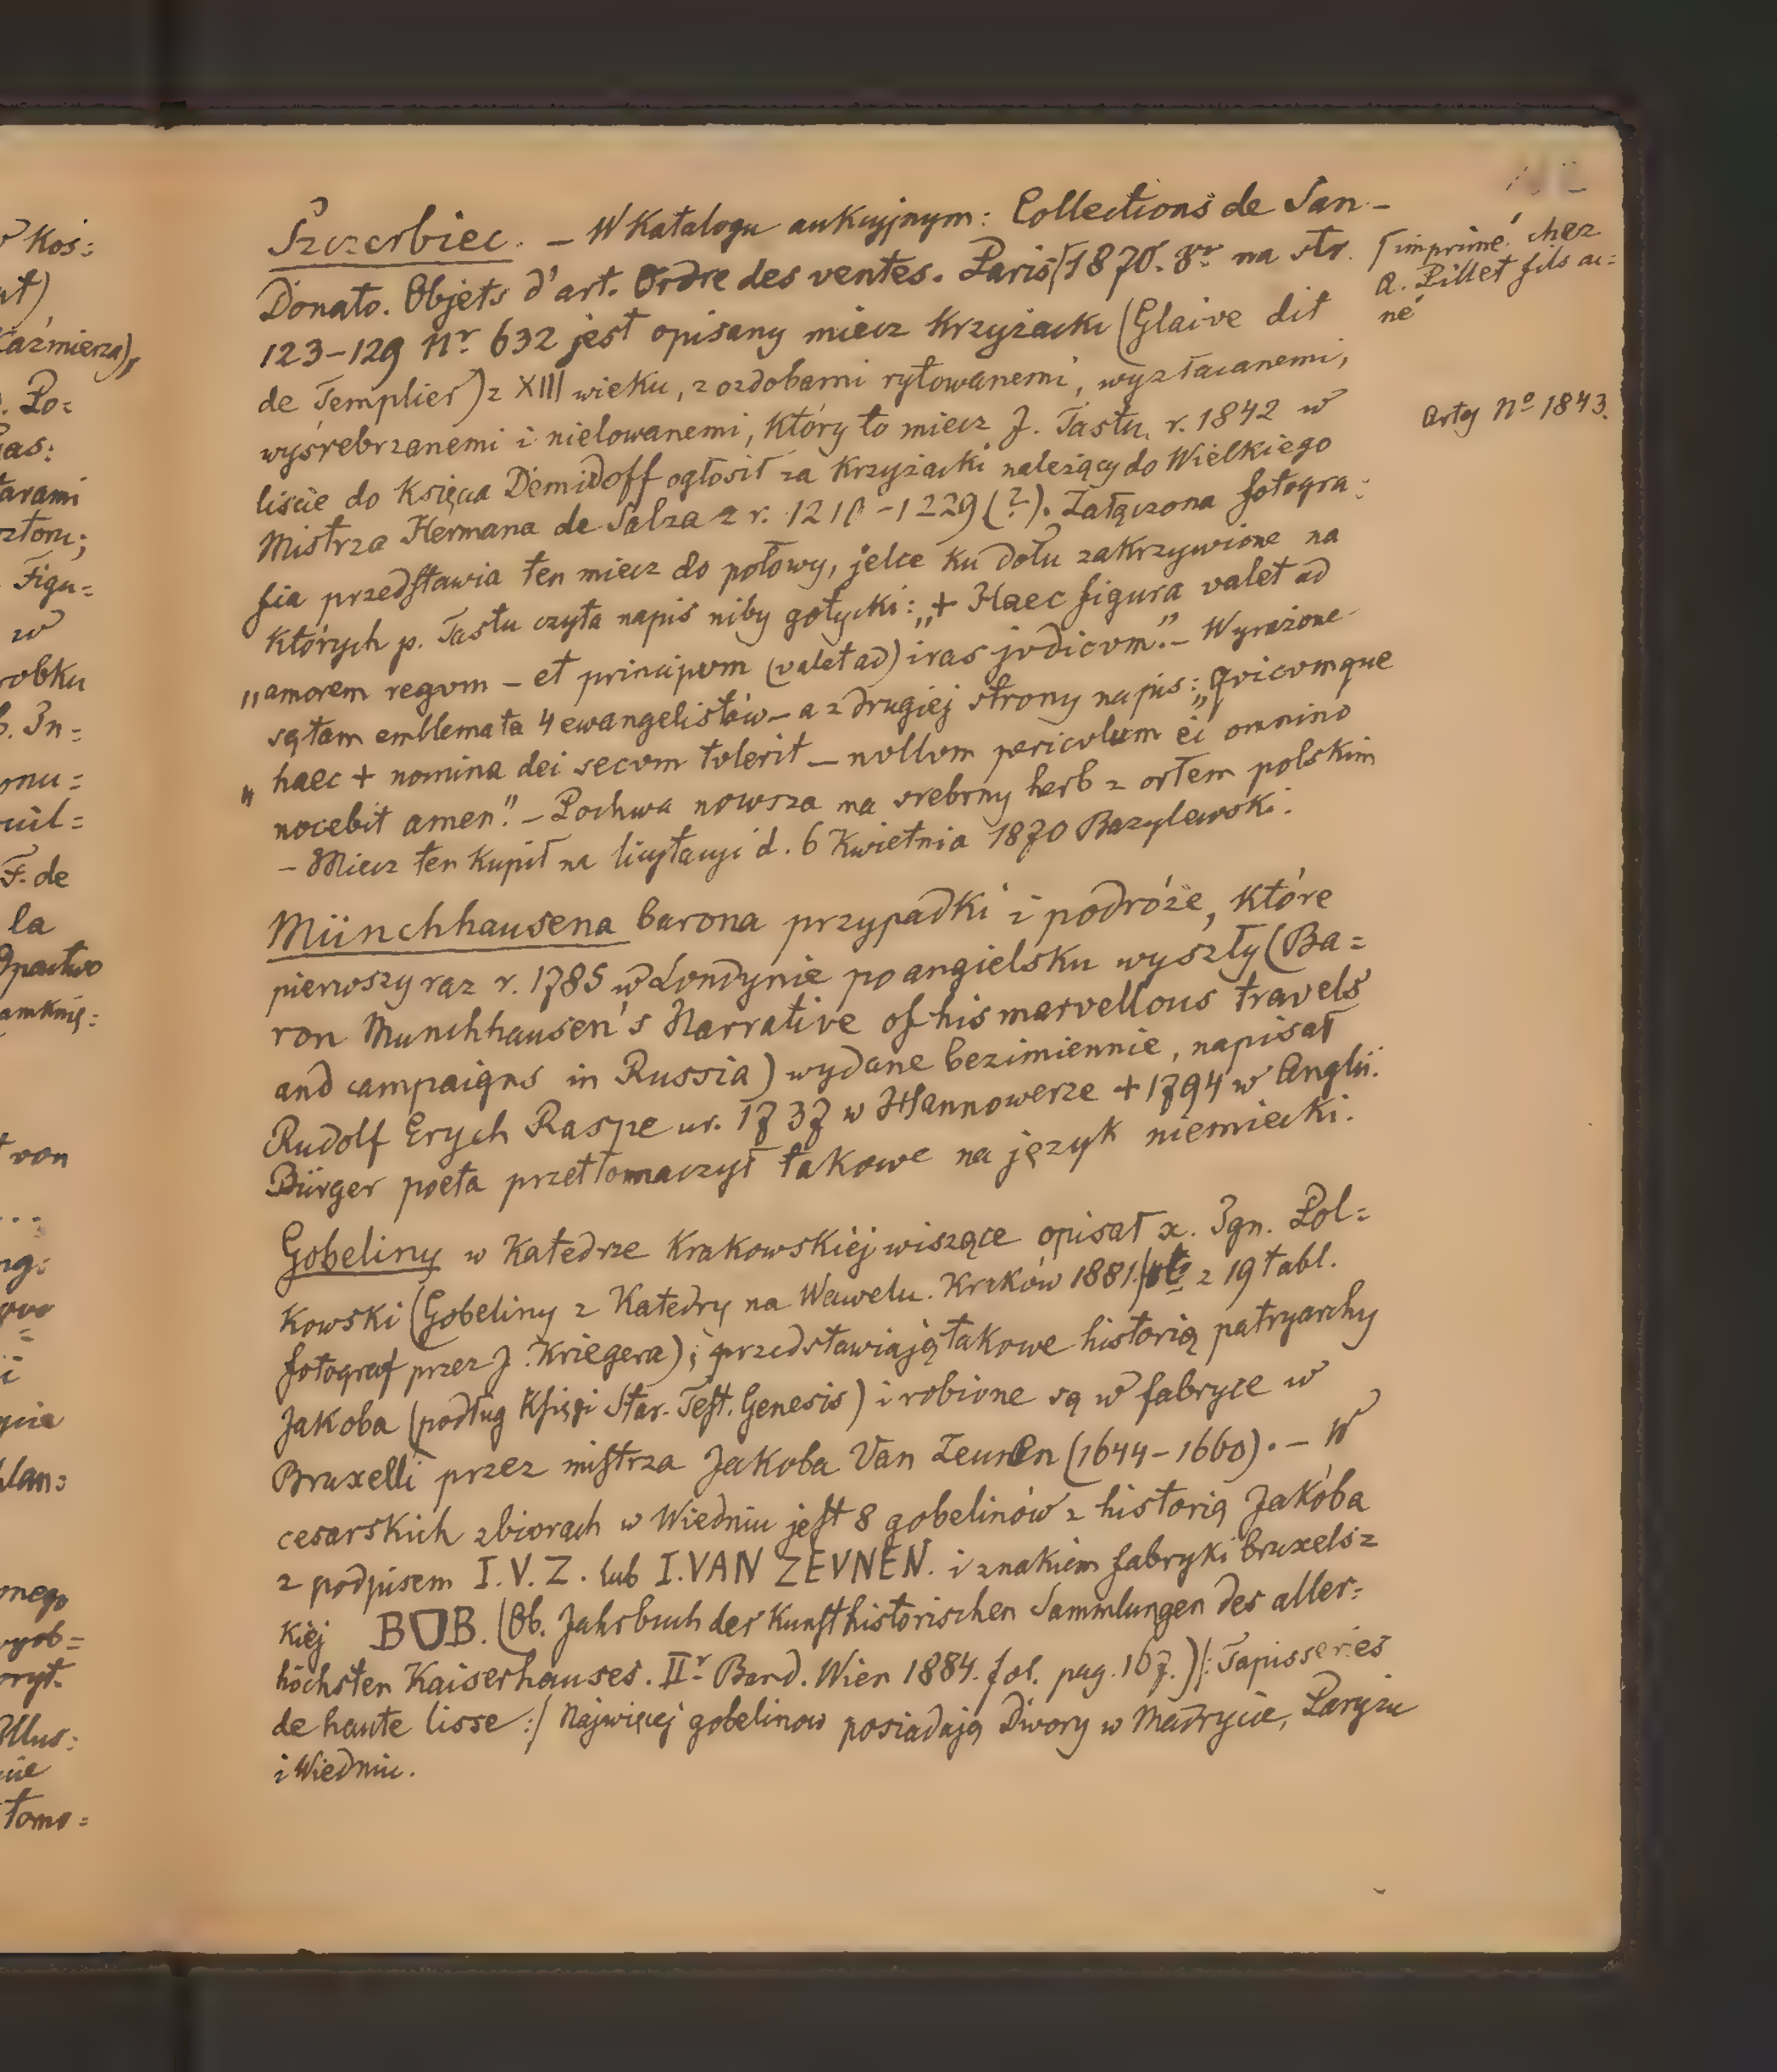 Szczerbiec. – W Katalogu aukcyjnym: Collections de San-
Donato. Objets d'art. Ordre des ventes. Paris ⌈1870. 8vo na str.
123–129 Nr. 632 jest opisany miecz Krzyżacki (Glaive dit
de Templier) z XIII wieku, z ozdobami rytowanemi, wyzłacanemi,
wyśrebrzanemi i nielowanemi, Który to miecz J. Tastu. r. 1842 w
liście do Księcia Démidoff ogłosił za Krzyżacki należący do Wielkiego
Mistrza Hermana de Salza z r. 1210–1229 (?). Załączona fotogra:
fia przedstawia ten miecz do połowy, jelce ku dołu zakrzywione na
Których p. Tastu czyta napis niby gotycki: „+ Haec figura valet ad
„amorem regvm – et principvm (valet ad) iras jvdicvm." – Wyrażone
są tam emblemata 4 ewangelistów – a z drugiej strony napis: „Qvicvmque
„haec + nomina dei secvm tvlerit – nvllvm pericvlum ei omnino
nocebit amen". – Pochwa nowsza ma srebrny herb z orłem polskim
– Miecz ten Kupił na licytacyi d. 6 Kwietnia 1870 Bazylewski.
⌈imprimé chez
A. Pillet fils ai:
né
Arty No 1843.
Münchhausena barona przypadki i podróże, które
pierwszy raz r. 1785 w Londynie po angielsku wyszły (Ba=
ron Munchhausen's Narrative of his marvellous travels
and campaigns in Russia) wydane bezimiennie, napisał
Rudolf Erych Raspe ur. 1737 w Hannowerze + 1794 w Anglii.
Bürger poeta przetłomaczył takowe na język niemiecki.
Gobeliny w Katedrze Krakowskiej wiszące opisał x. Ign. Pol=
Kowski (Gobeliny z Katedry na Wawelu. Kraków 1881. z 19 tabl.
fotograf przez J. Kriegera); przedstawiają takowe historią patryarchy
Jakoba (podług Księgi Star. Test. Genesis) i robione są w fabryce w
Bruxelli przez mistrza Jakoba Van Zeunen (1644–1660). – W
cesarskich zbiorach w Wiedniu jest 8 gobelinów z historią Jakóba
z podpisem I. V. Z. lub I. VAN ZEVNEN. i znakiem fabryki bruxels=
Kiej B B. (Ob. Jahrbuch der Kunsthistorischen Sammlungen des aller=
höchsten Kaiserhauses. IIr Band. Wien 1884. fol. pag. 167.) /: Tapisseries
de haute lisse :/ Najwięcej gobelinow posiadają Dwory w Madrycie, Paryżu
i Wiedniu.